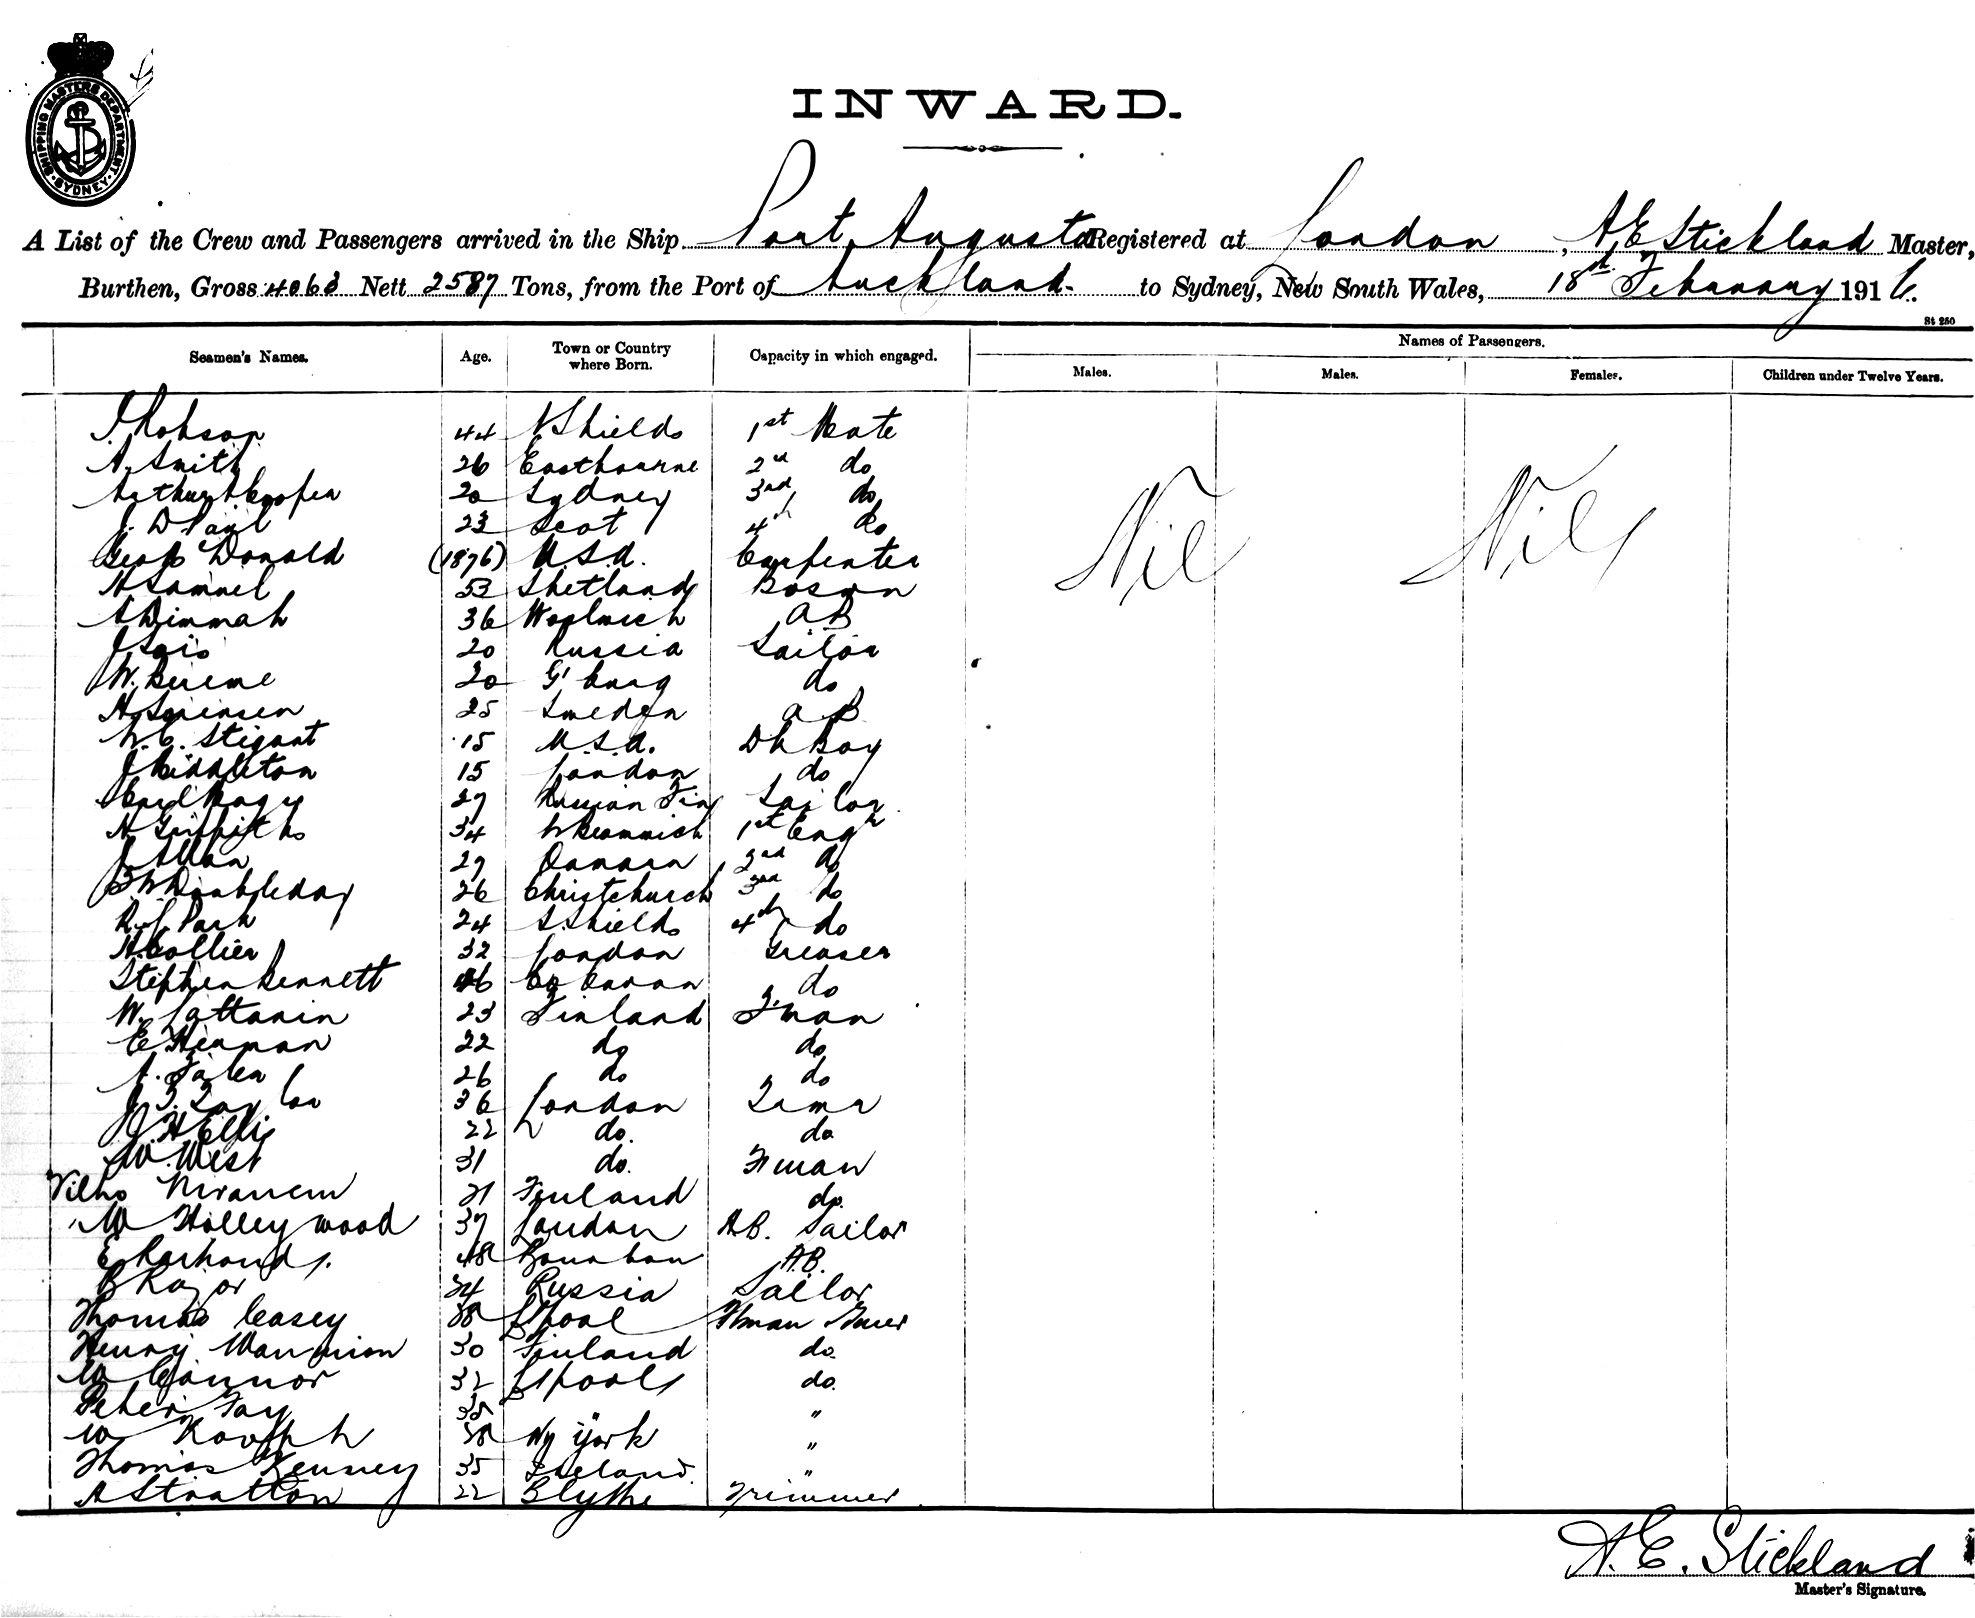 SHIPPING MASTERS DEPARTMENT
SYDNEY
INWARD.
A List of the Crew and Passengers arrived in the Ship Port Augusta Registered at London, A E Stickland Master,
Burthen, Gross 4063 Nett 2587 Tons, from the Port of Auckland. to Sydney, New South Wales, 18th February 1916.
St 250
Seamen's Names. Age. Town or Country where Born. Capacity in which engaged. Names of Passengers.
Males. Males. Females. Children under Twelve Years.
J. Robson 44 N Shields 1st Mate
A. Smith 26 Eastbourne 2nd do
Arthur H Cooper 20 Sydney 3rd do
J. D Paul 23 Scot 4th do
Nil Nil
Donald (1876) U.S.A. Carpenter
H Samuel 53 Shetland Bosun
A Dimmah 36 Woolwich AB
20 Russia Sailor
W. 20 G'burg do
H Sorensen 25 Sweden AB
W. C. Stigant 15 U.S.A. Dk Boy
J Middleton 15 London do
Carl 27 Russian Fin Sailor
H Griffiths 34 W Bromwich 1st Engr
J Allan 27 Oamaru 2nd do
Doubleday 26 Christchurch 3rd do
R. J. Park 24 S. Shields 4th do
H. Collier 32 London Greaser
Stephen Bennett 46 Co do
W. 23 Finland F'man
E 22 do do
A. 26 do do
J. F. Taylor 36 London
J. H Ellis 22 do. do
W. West 31 do. F'man
Vilho 21 Finland do.
W Holleywood 37 London AB. Sailor
E 48 A.B.
B Razor 24 Russia Sailor
Thomas Casey 38 L'pool F'man
Henry 30 Finland do.
W Connor 32 L'pool do.
Peter Fay 38 " "
W 38 N York "
Thomas Kenney 35 Ireland "
A Stratton 22 Blythe Trimmer
A. E. Stickland
Master's Signature.